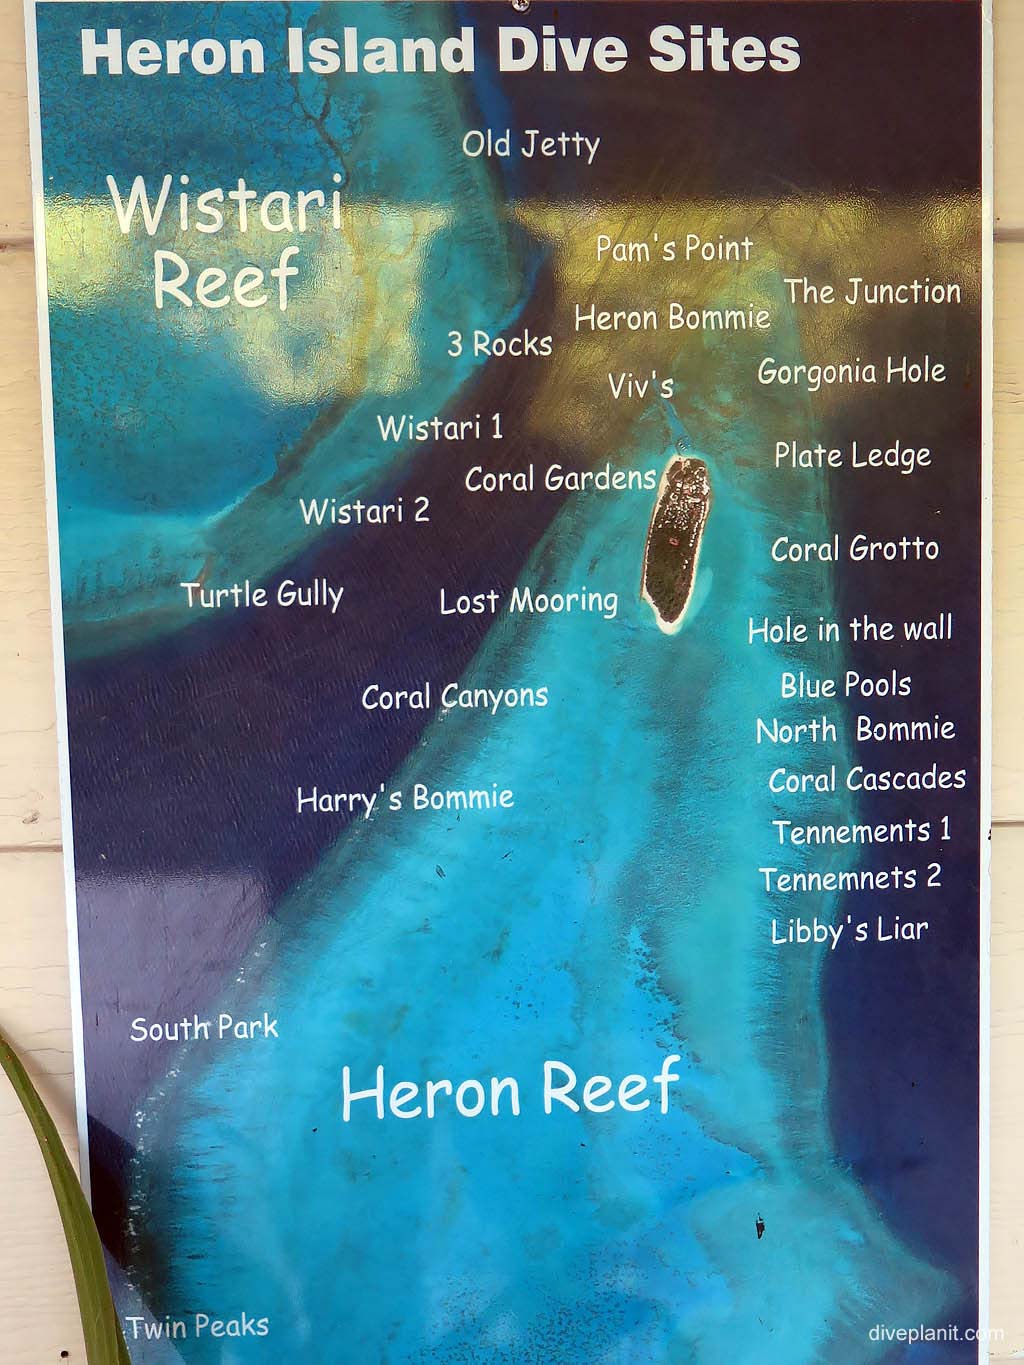 Heron Island Dive Sites
Old Jetty
Wistari
Reef
Pam's Point
The Junction
Heron Bommie
3 Rocks
Gorgonia Hole
Viv's
Wistari 1
Plate Ledge
Coral Gardens
Wistari 2
Coral Grotto
Turtle Gully
Lost Mooring
Hole in the wall
Blue Pools
Coral Canyons
North Bommie
Coral Cascades
Harry's Bommie
Tennements 1
Tennemnets 2
Libby's Liar
South Park
Heron Reef
Twin Peaks
diveplanit.com